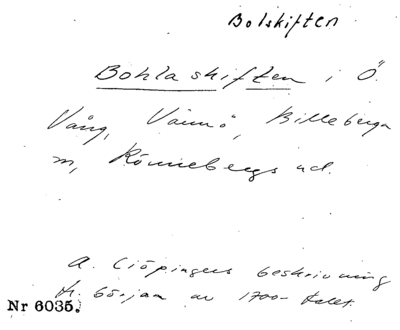 Bolskiften
Bohlaskiften i Ö.
Vång, Vännö, Billeberga
m, Rönnebergs hd.
A. Ciöpingers beskrivning
fr. början av 1700-talet.
Nr 6035.